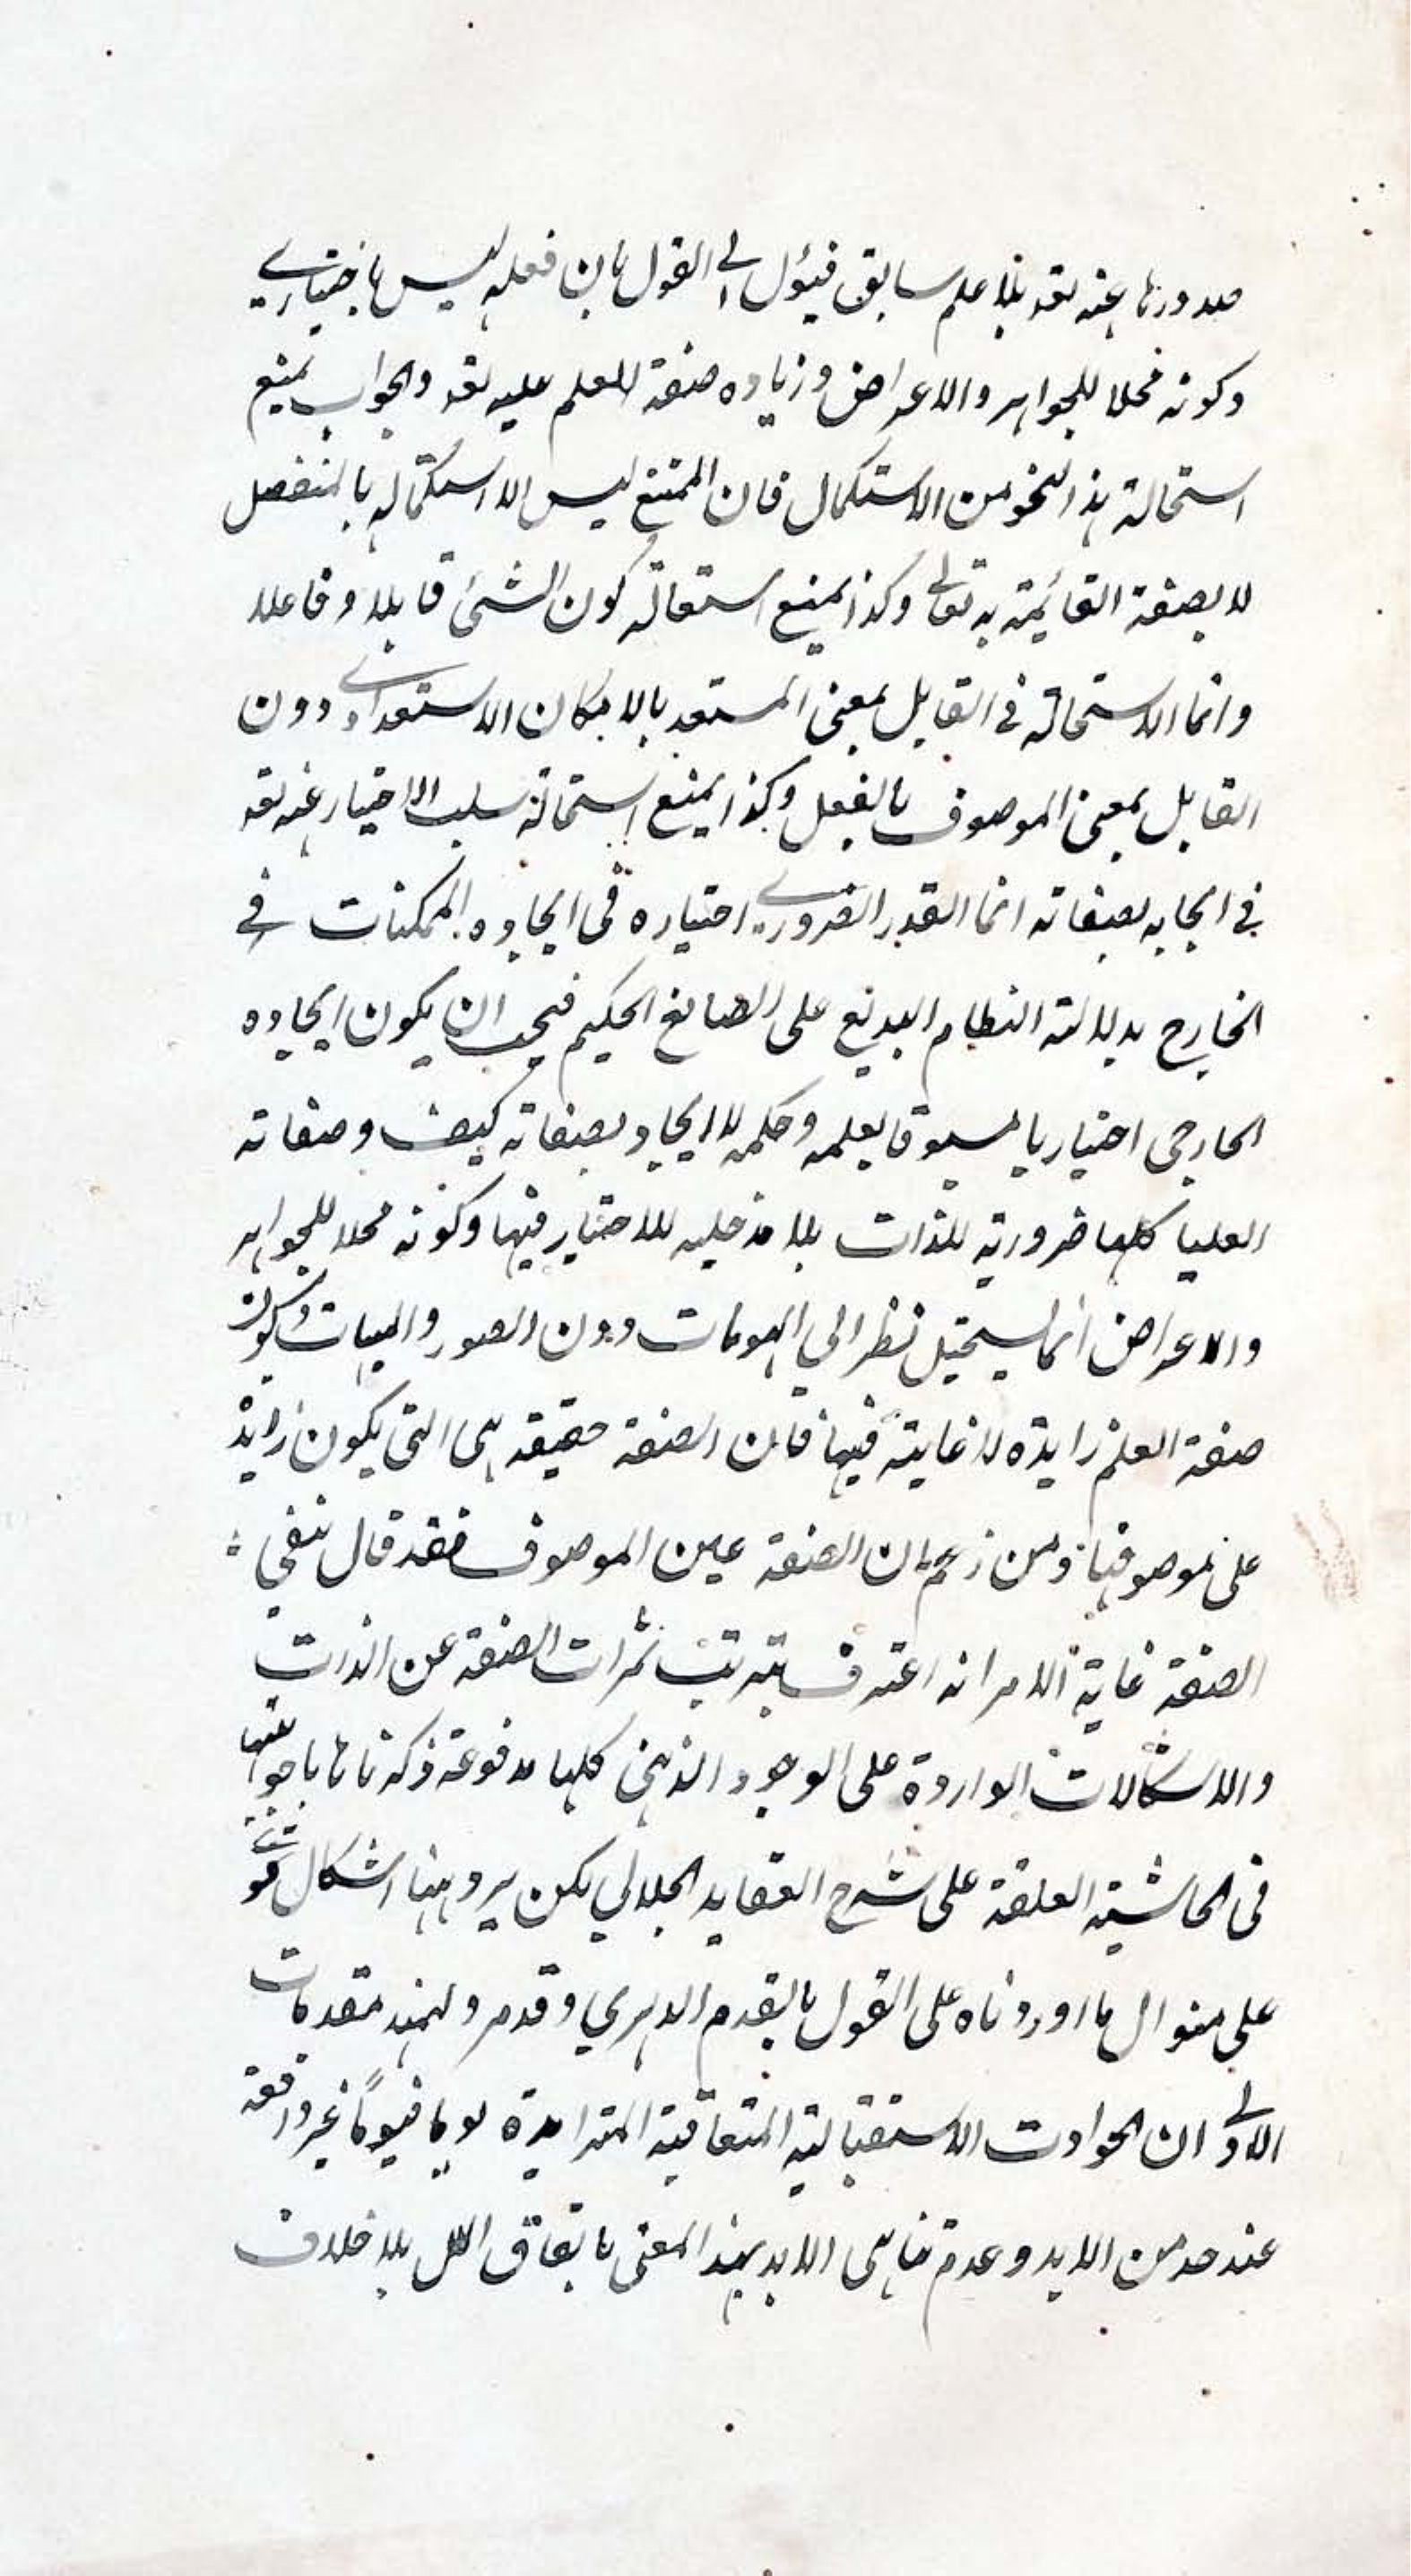 صدورها عنه تعد بلا علم سابق فيئول الى القول بان فعله ليس باختياري
وكونه محلا للجواهر والاعراض وزياده صفة العلم عليه تعد والجواب بمنع
استحالة هذا النحو من الاستكمال فان الممتنع ليس الا استكماله بالمنفصل
لا بصفة القائمة به تعالى وكذا بمنع استحالة كون الشئ قابلا وفاعلا
وانما الاستحالة في القابل بمعنى المستعد بالامكان الاستعدادي دون
القابل بمعنى الموصوف بالفعل وكذا بمنع استحالة سلب الاختيار عنه تعد
في ايجابه بصفاته انما القدر الضروري اختياره في ايجاده الممكنات في
الخارج بدلالته النظام البديع على الصانع الحكيم فيجب ان يكون ايجاده
الخارجى اختياريا مسبوقا بعلمه وحكمه لا ايجاد بصفاته كيف وصفاته
العليا كلها ضرورية للذات بلا مدخليه للاختيار فيها وكونه محلا للجواهر
والاعراض انما يستحيل نظرا الى الهويات دون الصور والمهيات وكون
صفة العلم زايدة لا غاية فيها فان الصفة حقيقه هى التى يكون زايدة
على موصوفها ومن زعم ان الصفة عين الموصوف فقد قال بنفي
الصفة غاية الامر انه اعترف بترتب ثمرات الصفة عن الذات
والاشكالات الواردة على الوجود الذهنى كلها مدفوعة ذكرناها باجوبتها
فى الحاشية المعلقة على شرح العقايد الجلالي لكن يرد ههنا اشكال قوي
على منوال ما اوردناه على القول بالقدم الدهري وقدمر ولنمهد مقدمات
الاولى ان الحوادث الاستقبالية المتعاقبة المتزايدة يوما فيوماً غير واقفة
عند حد من الابد وعدم تناهى الابد بهذا المعنى باتفاق الكل بلا خلاف